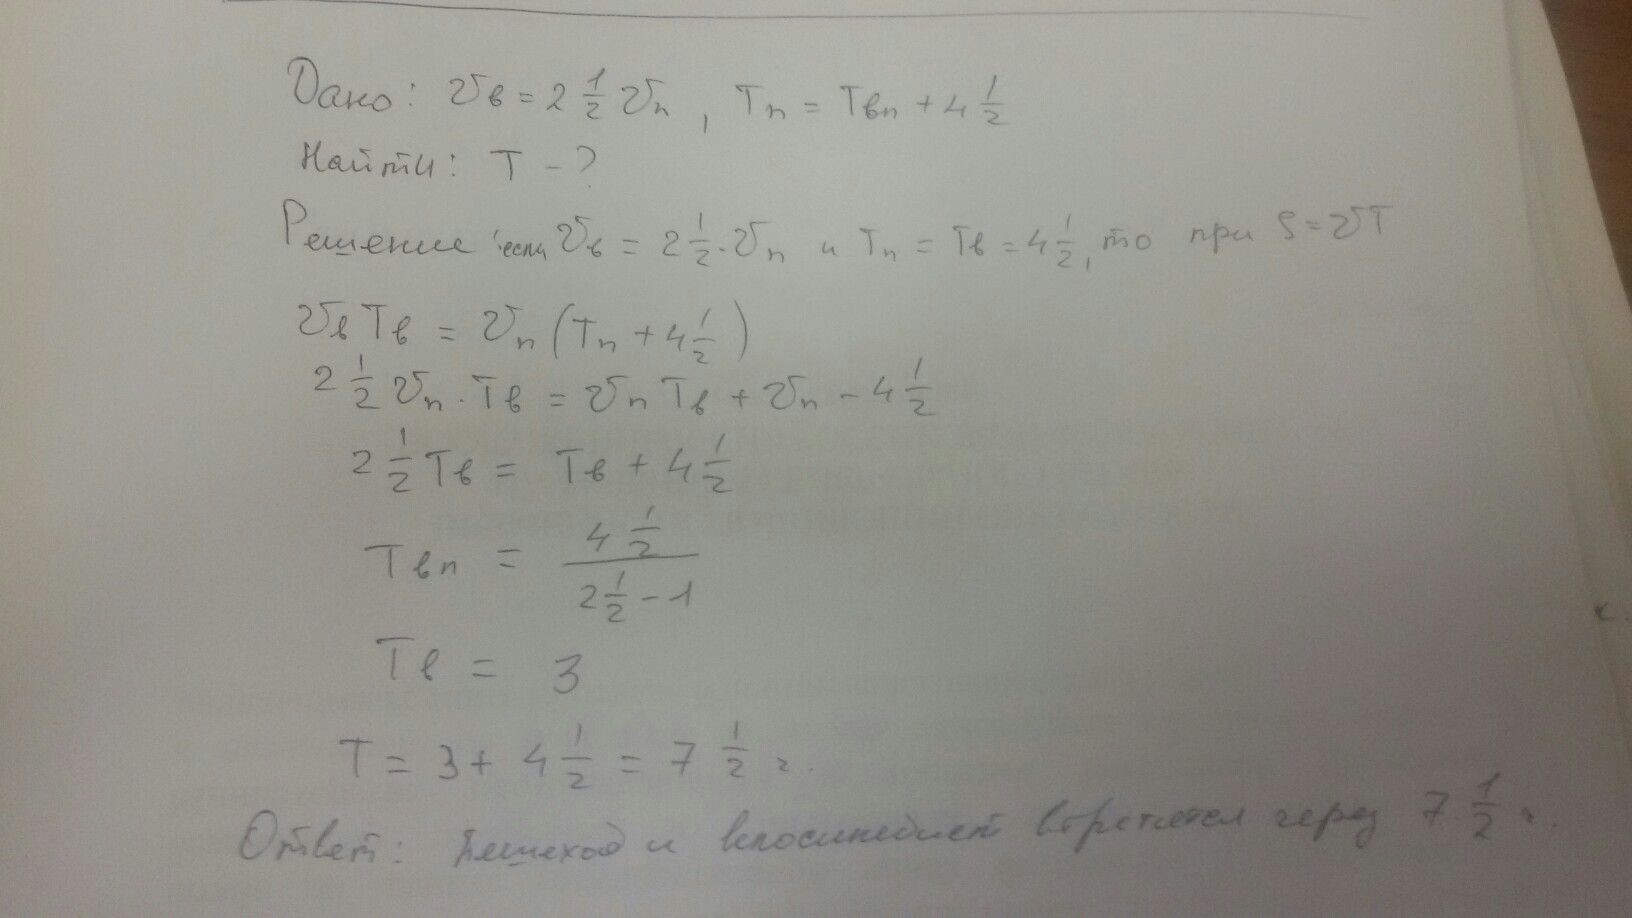 Дано: υв = 2 1/2 υп, Tп = Tвп + 4 1/2
Найти: T - ?
Решение: если υв = 2 1/2 · υп и Tп = Tв = 4 1/2, то при S = υT
υв Tв = υп (Tп + 4 1/2)
2 1/2 υп · Tв = υп Tв + υп - 4 1/2
2 1/2 Tв = Tв + 4 1/2
Tвп = (4 1/2) / (2 1/2 - 1)
Tв = 3
T = 3 + 4 1/2 = 7 1/2 ч.
Ответ: пешеход и велосипедист встретятся через 7 1/2 ч.